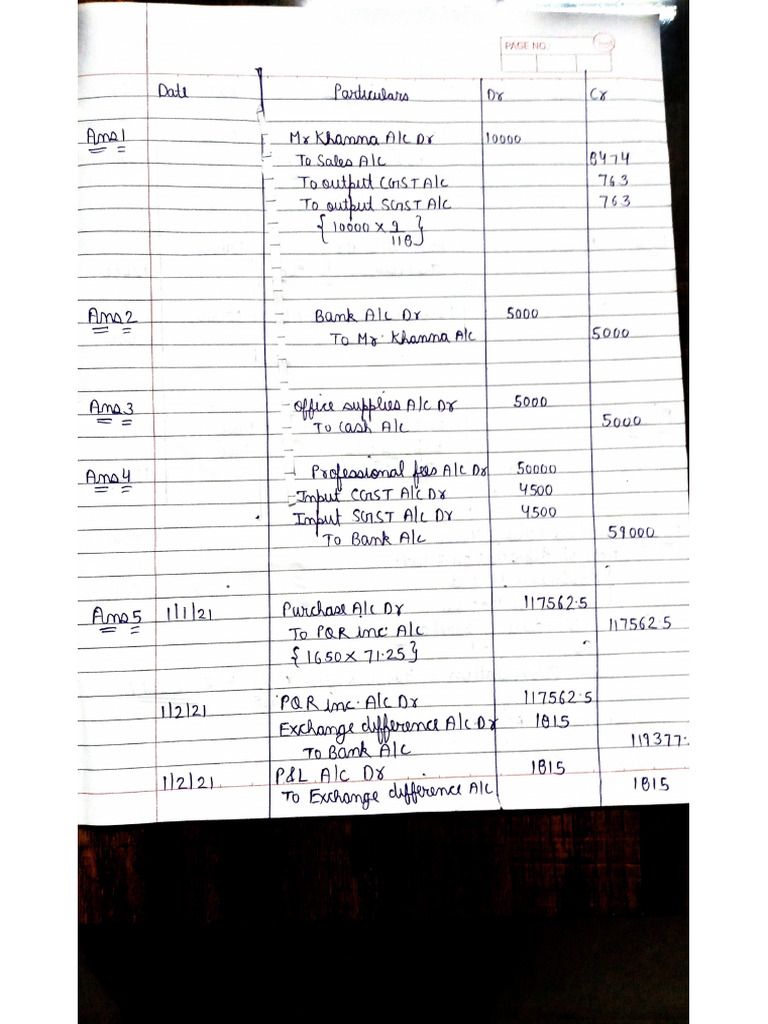 PAGE NO.
Date Particulars Dr Cr
Ans 1 Mr Khanna A/c Dr 10000
To Sales A/c 8474
To output CGST A/c 763
To output SGST A/c 763
{10000 × 9/118}
Ans 2 Bank A/c Dr 5000
To Mr. Khanna A/c 5000
Ans 3 office supplies A/c Dr 5000
To Cash A/c 5000
Ans 4 Professional fees A/c Dr 50000
Input CGST A/c Dr 4500
Input SGST A/c Dr 4500
To Bank A/c 59000
Ans 5 1/1/21 Purchase A/c Dr 117562.5
To PQR inc. A/c 117562.5
{1650 × 71.25}
1/2/21 PQR inc. A/c Dr 117562.5
Exchange difference A/c Dr 1815
To Bank A/c 119377.
1/2/21 P&L A/c Dr 1815
To Exchange difference A/c 1815